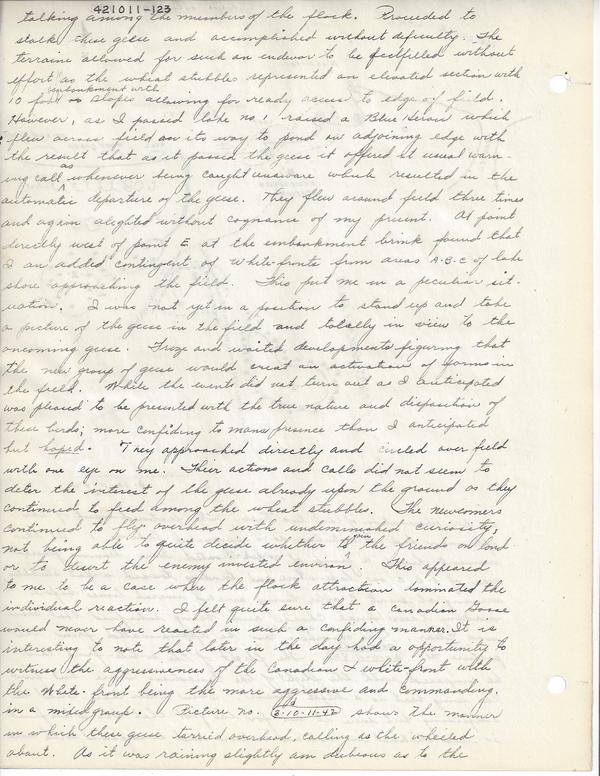 421011-123
talking among the members of the flock. Proceeded to
stalk these geese and accomplished without deficulty. The
terraine allowed for such an endevor to be feelfilled without
effort as the wheat stubble represented an elevated section with
embankment with
10 foot slopes allowing for ready access to edge of field.
However, as I passed lake no. 1 raised a Blue Heron which
flew across field on its way to pond on adjoining edge with
the result that as it passed the geese it offered it usual warn-
ing call as whenever being caught unaware which resulted in the
automatic departure of the geese. They flew around field three times
and again alighted without cognance of my presint. At point
directly west of point E at the embankment brink found that
I an added contingent of White-fronts from areas A-B-C of lake
shore approaching the field. This put me in a peculiar sit-
uation. I was not yet in a position to stand up and take
a picture of the geese in the field and totally in view to the
oncoming geese. Froze and waited developments figuring that
the new group of geese would creat an activation of forms in
the field. While the events did not turn out as I anticipated
was pleased to be presented with the true nature and disposition of
these birds; more confiding to mans presence than I anticipated
but hoped. They approached directly and circled over field
with one eye on me. Their actions and calls did not seem to
deter the interest of the geese already upon the ground as they
continued to feed among the wheat stubbles. The newcomers
continued to fly overhead with undeminished curiosity,
not being able to quite decide whether to join the friends on land
or to desert the enemy invested environ. This appeared
to me to be a case where the flock attraction dominated the
individual reaction. I felt quite sure that a Canadian Goose
would never have reacted in such a confiding manner. It is
interesting to note that later in the day had a opportunity to
witness the aggressiveness of the Canadian & white-front with
the White-front being the more aggressive and commanding.
in a mixed group. Picture no. 3-10-11-42 shows the manner
in which these geese tarried overhead, calling as the wheeled
about. As it was raining slightly am dubeous as to the